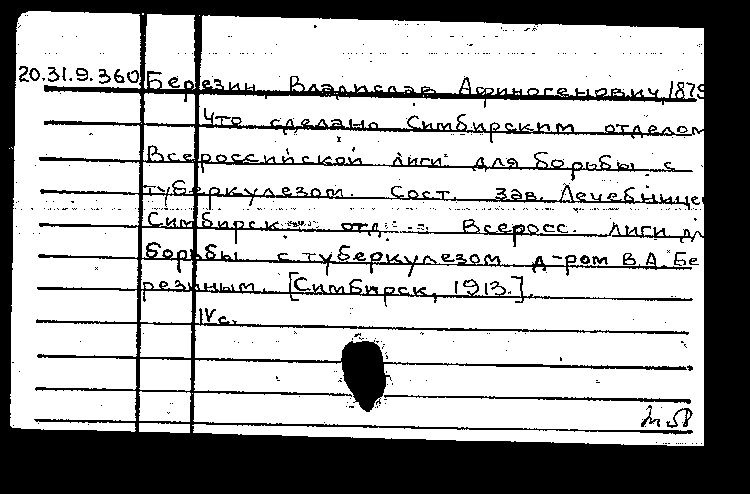 20.31.9.360 Березин, Владислав Афиногенович, 1879
Что сделано Симбирским отделом
Всероссийской лиги для борьбы с
туберкулезом. Сост. зав. Лечебнице
Симбирск отд Всеросс. лиги дл
борьбы с туберкулезом д-ром В.А. Бе
резиным. [Симбирск, 1913.].
IV с.